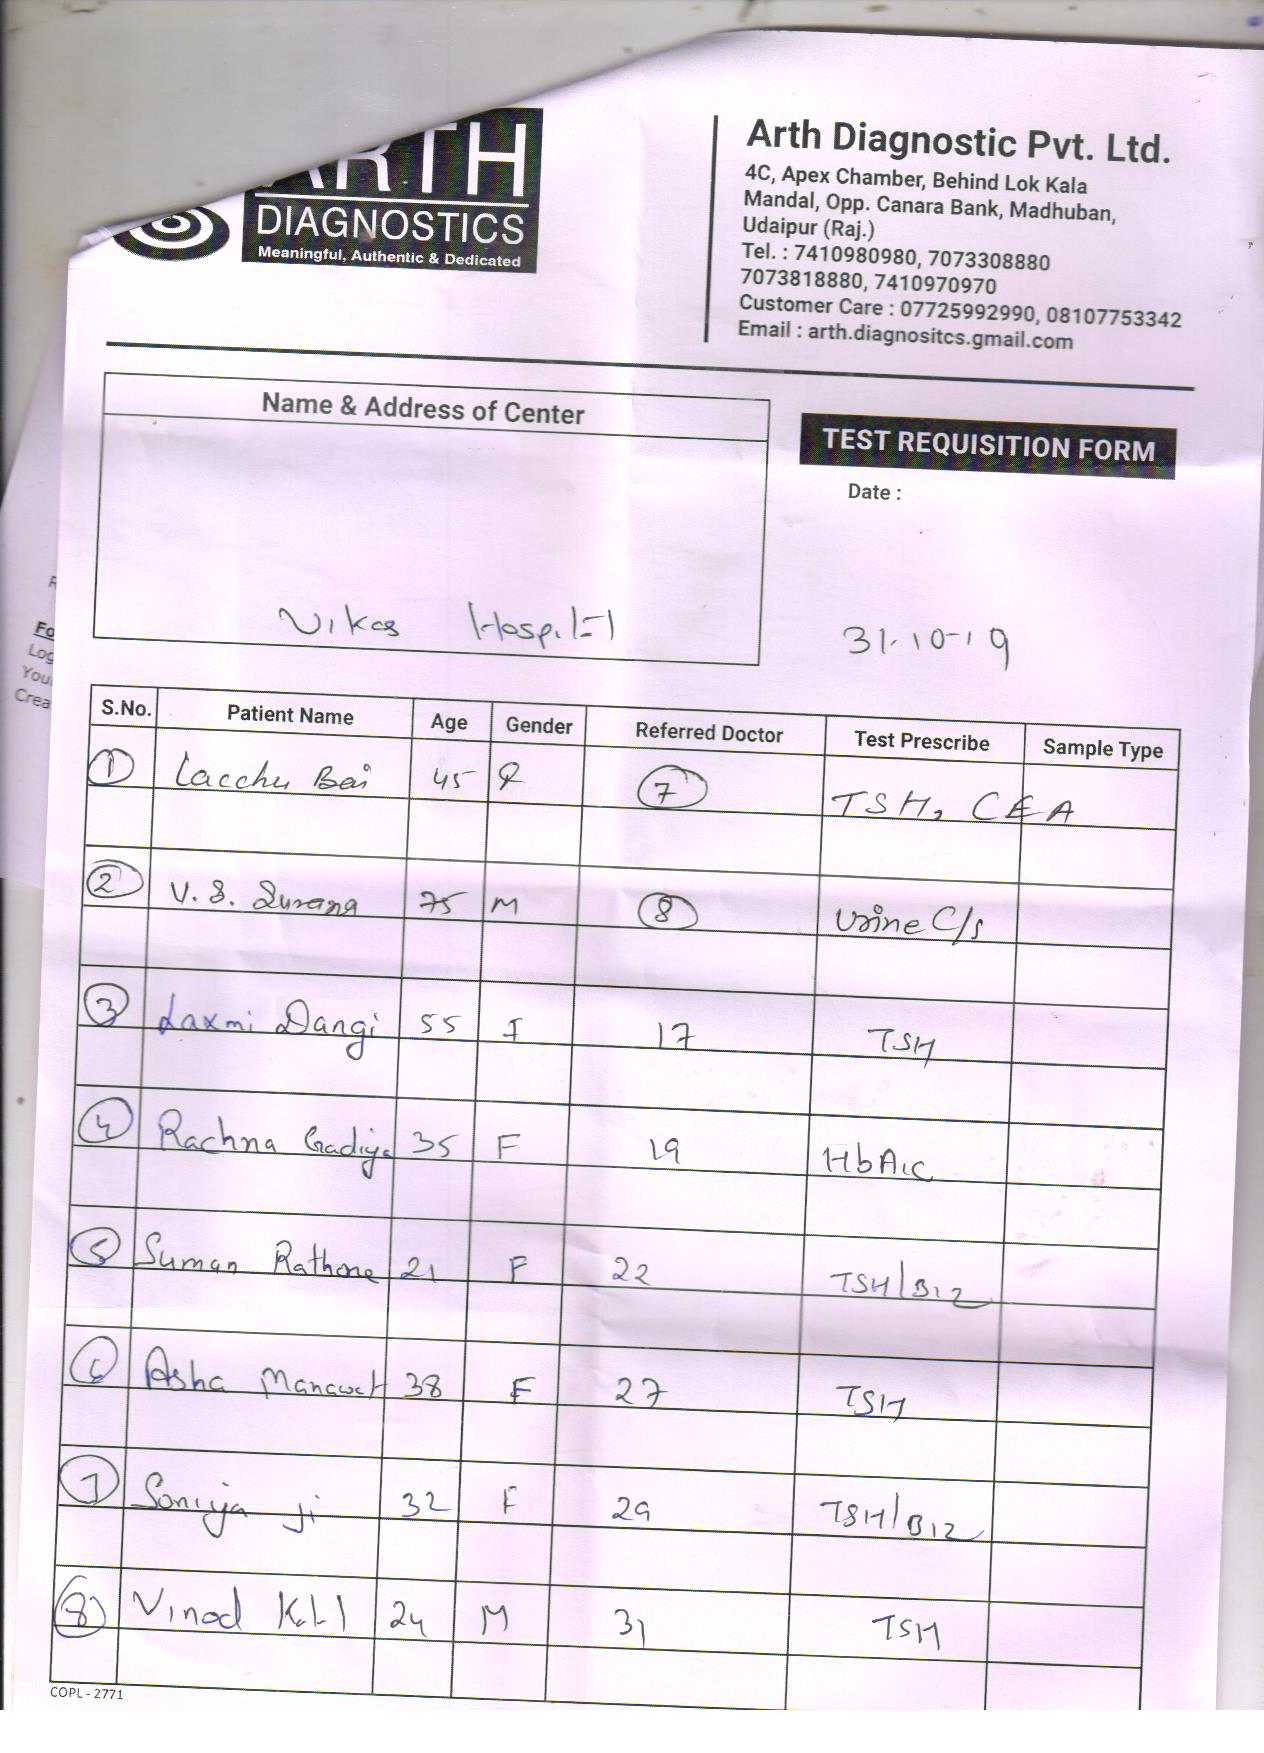 ARTH
DIAGNOSTICS
Meaningful, Authentic & Dedicated
Arth Diagnostic Pvt. Ltd.
4C, Apex Chamber, Behind Lok Kala
Mandal, Opp. Canara Bank, Madhuban,
Udaipur (Raj.)
Tel. : 7410980980, 7073308880
7073818880, 7410970970
Customer Care : 07725992990, 08107753342
Email : arth.diagnositcs.gmail.com
Name & Address of Center
Vikas Hospital
TEST REQUISITION FORM
Date :
31-10-19
Fo
Log
You
Crea
S.No. Patient Name Age Gender Referred Doctor Test Prescribe Sample Type
1 Lacchu Bai 45 7 TSH, CEA
2 V. S. Surana 75 M 8 Urine C/s
3 Laxmi Dangi 55 F 17 TSH
4 Rachna Gadiya 35 F 19 HbA1c
5 Suman Rathore 21 F 22 TSH/B12
6 Asha Manawat 38 F 27 TSH
7 Soniya Ji 32 F 29 TSH/B12
8 Vinod 24 M 31 TSH
COPL - 2771